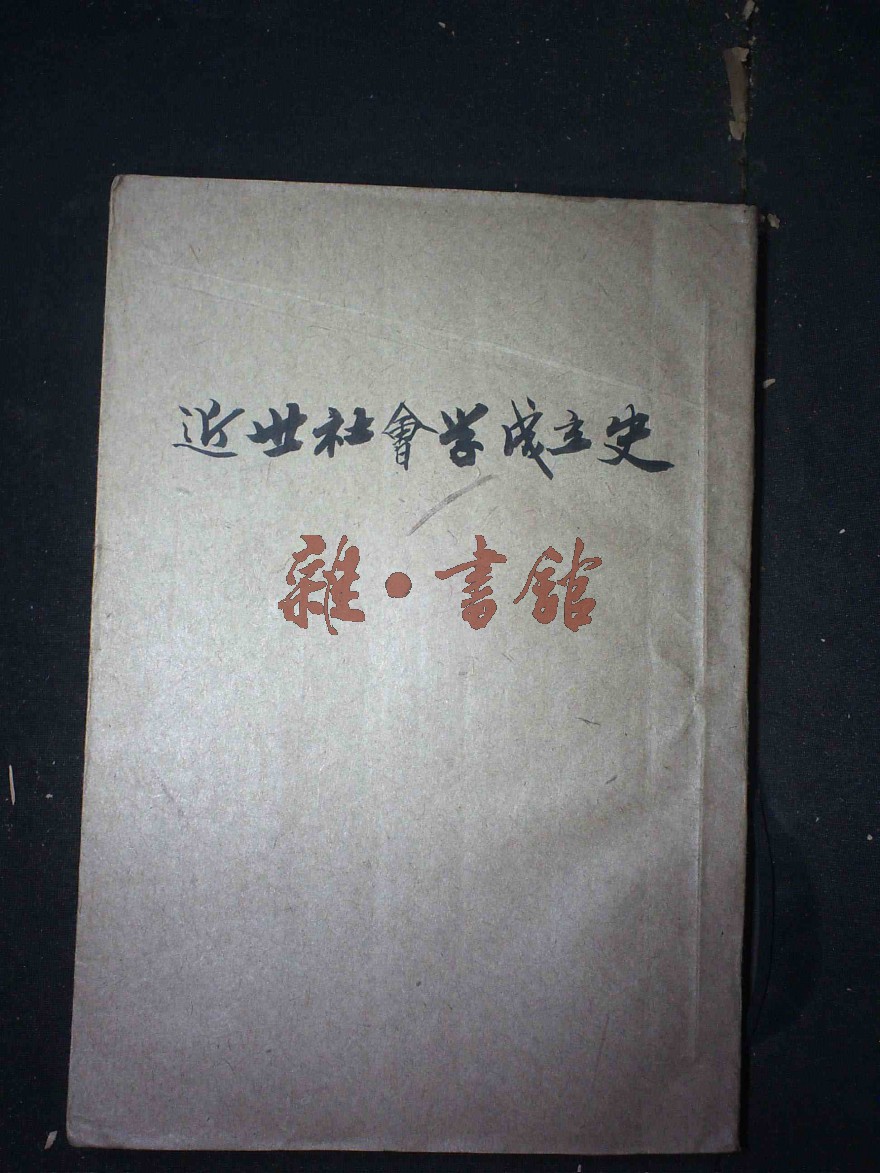 近世社會学成立史
雜·書館